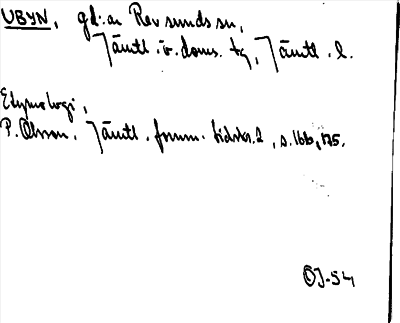 UBYN, gd:ar Revsunds sn,
Jämtl. ö. doms. tg, Jämtl. l.
Etymologi,
P. Olsson. Jämtl. fornm. tidskr. 2, s. 166, 175.
ÖJ-54